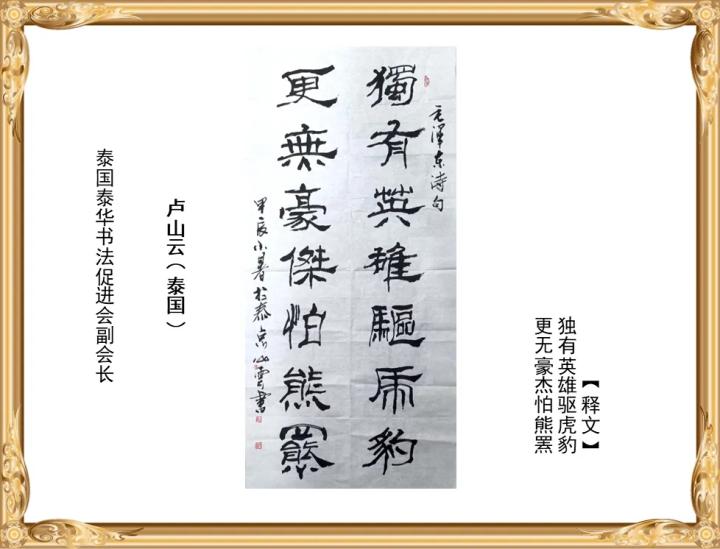 【释文】
独有英雄驱虎豹
更无豪杰怕熊罴
毛泽东诗句
獨有英雄驅虎豹
更無豪傑怕熊羆
甲辰小暑於泰京山雲書
卢山云（泰国）
泰国泰华书法促进会副会长